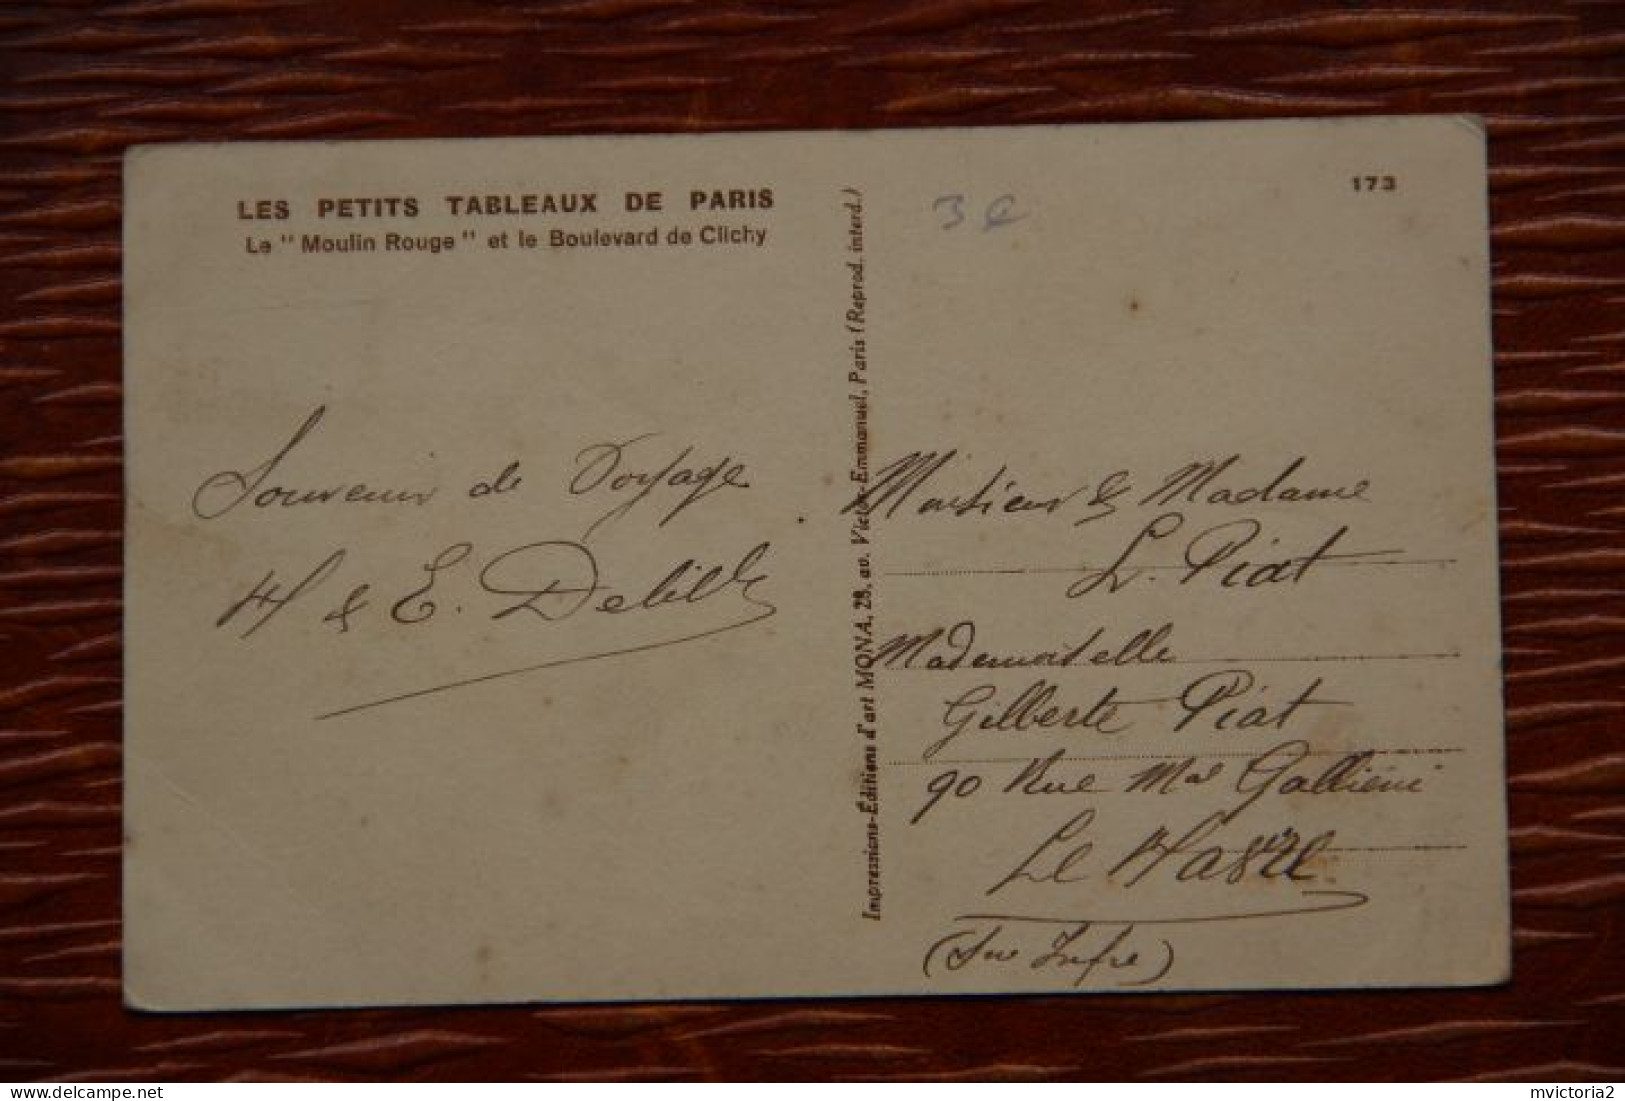 LES PETITS TABLEAUX DE PARIS
Le " Moulin Rouge " et le Boulevard de Clichy
173
3 €
Souvenir de Voyage
H & E. Delille
Impressions-Éditions d'art MONA, 28, av. Victor-Emmanuel, Paris (Reprod. interd.)
Monsieur & Madame
L. Piat
Mademoiselle
Gilberte Piat
90 Rue Mal Galliéni
Le Havre
(Sne Infre)
delcampe.net
mvictoria2